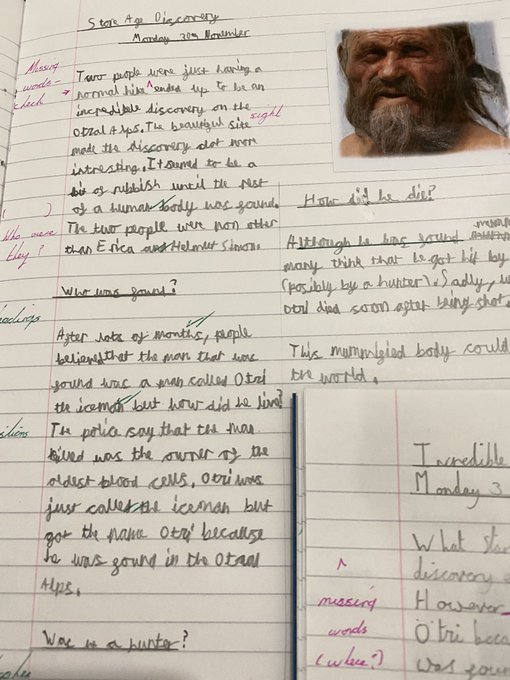 Stone Age Discovery
Monday 30th November
Missing
words -
check →
Two people were just having a
normal hike ^ ended up to be an
incredible discovery on the
Otzal Alps. The beautiful site sight
made the discovery alot more
intresting. It seemed to be a
bit of rubbish until the rest
of a human body was found.
( )
Who were
they?
The two people were non other
than Erica and Helmut Simon.
Who was found?
After lots of months, people
believed that the man that was
found was a man called Otzi
the iceman but how did he live?
The police say that the man
killed was the owner of the
oldest blood cells. Otzi was
just called the iceman but
got the name Otzi because
he was found in the Otzal
Alps.
Was he a hunter?
How did he die?
Although he was found
many think that he got hit by
(posibly by a hunter). Sadly,
Otzi died soon after being shot.
This mummyfied body could
the world.
Incredible
Monday 3
What
^
discovery
missing
words
(where?)
However
Otzi
was